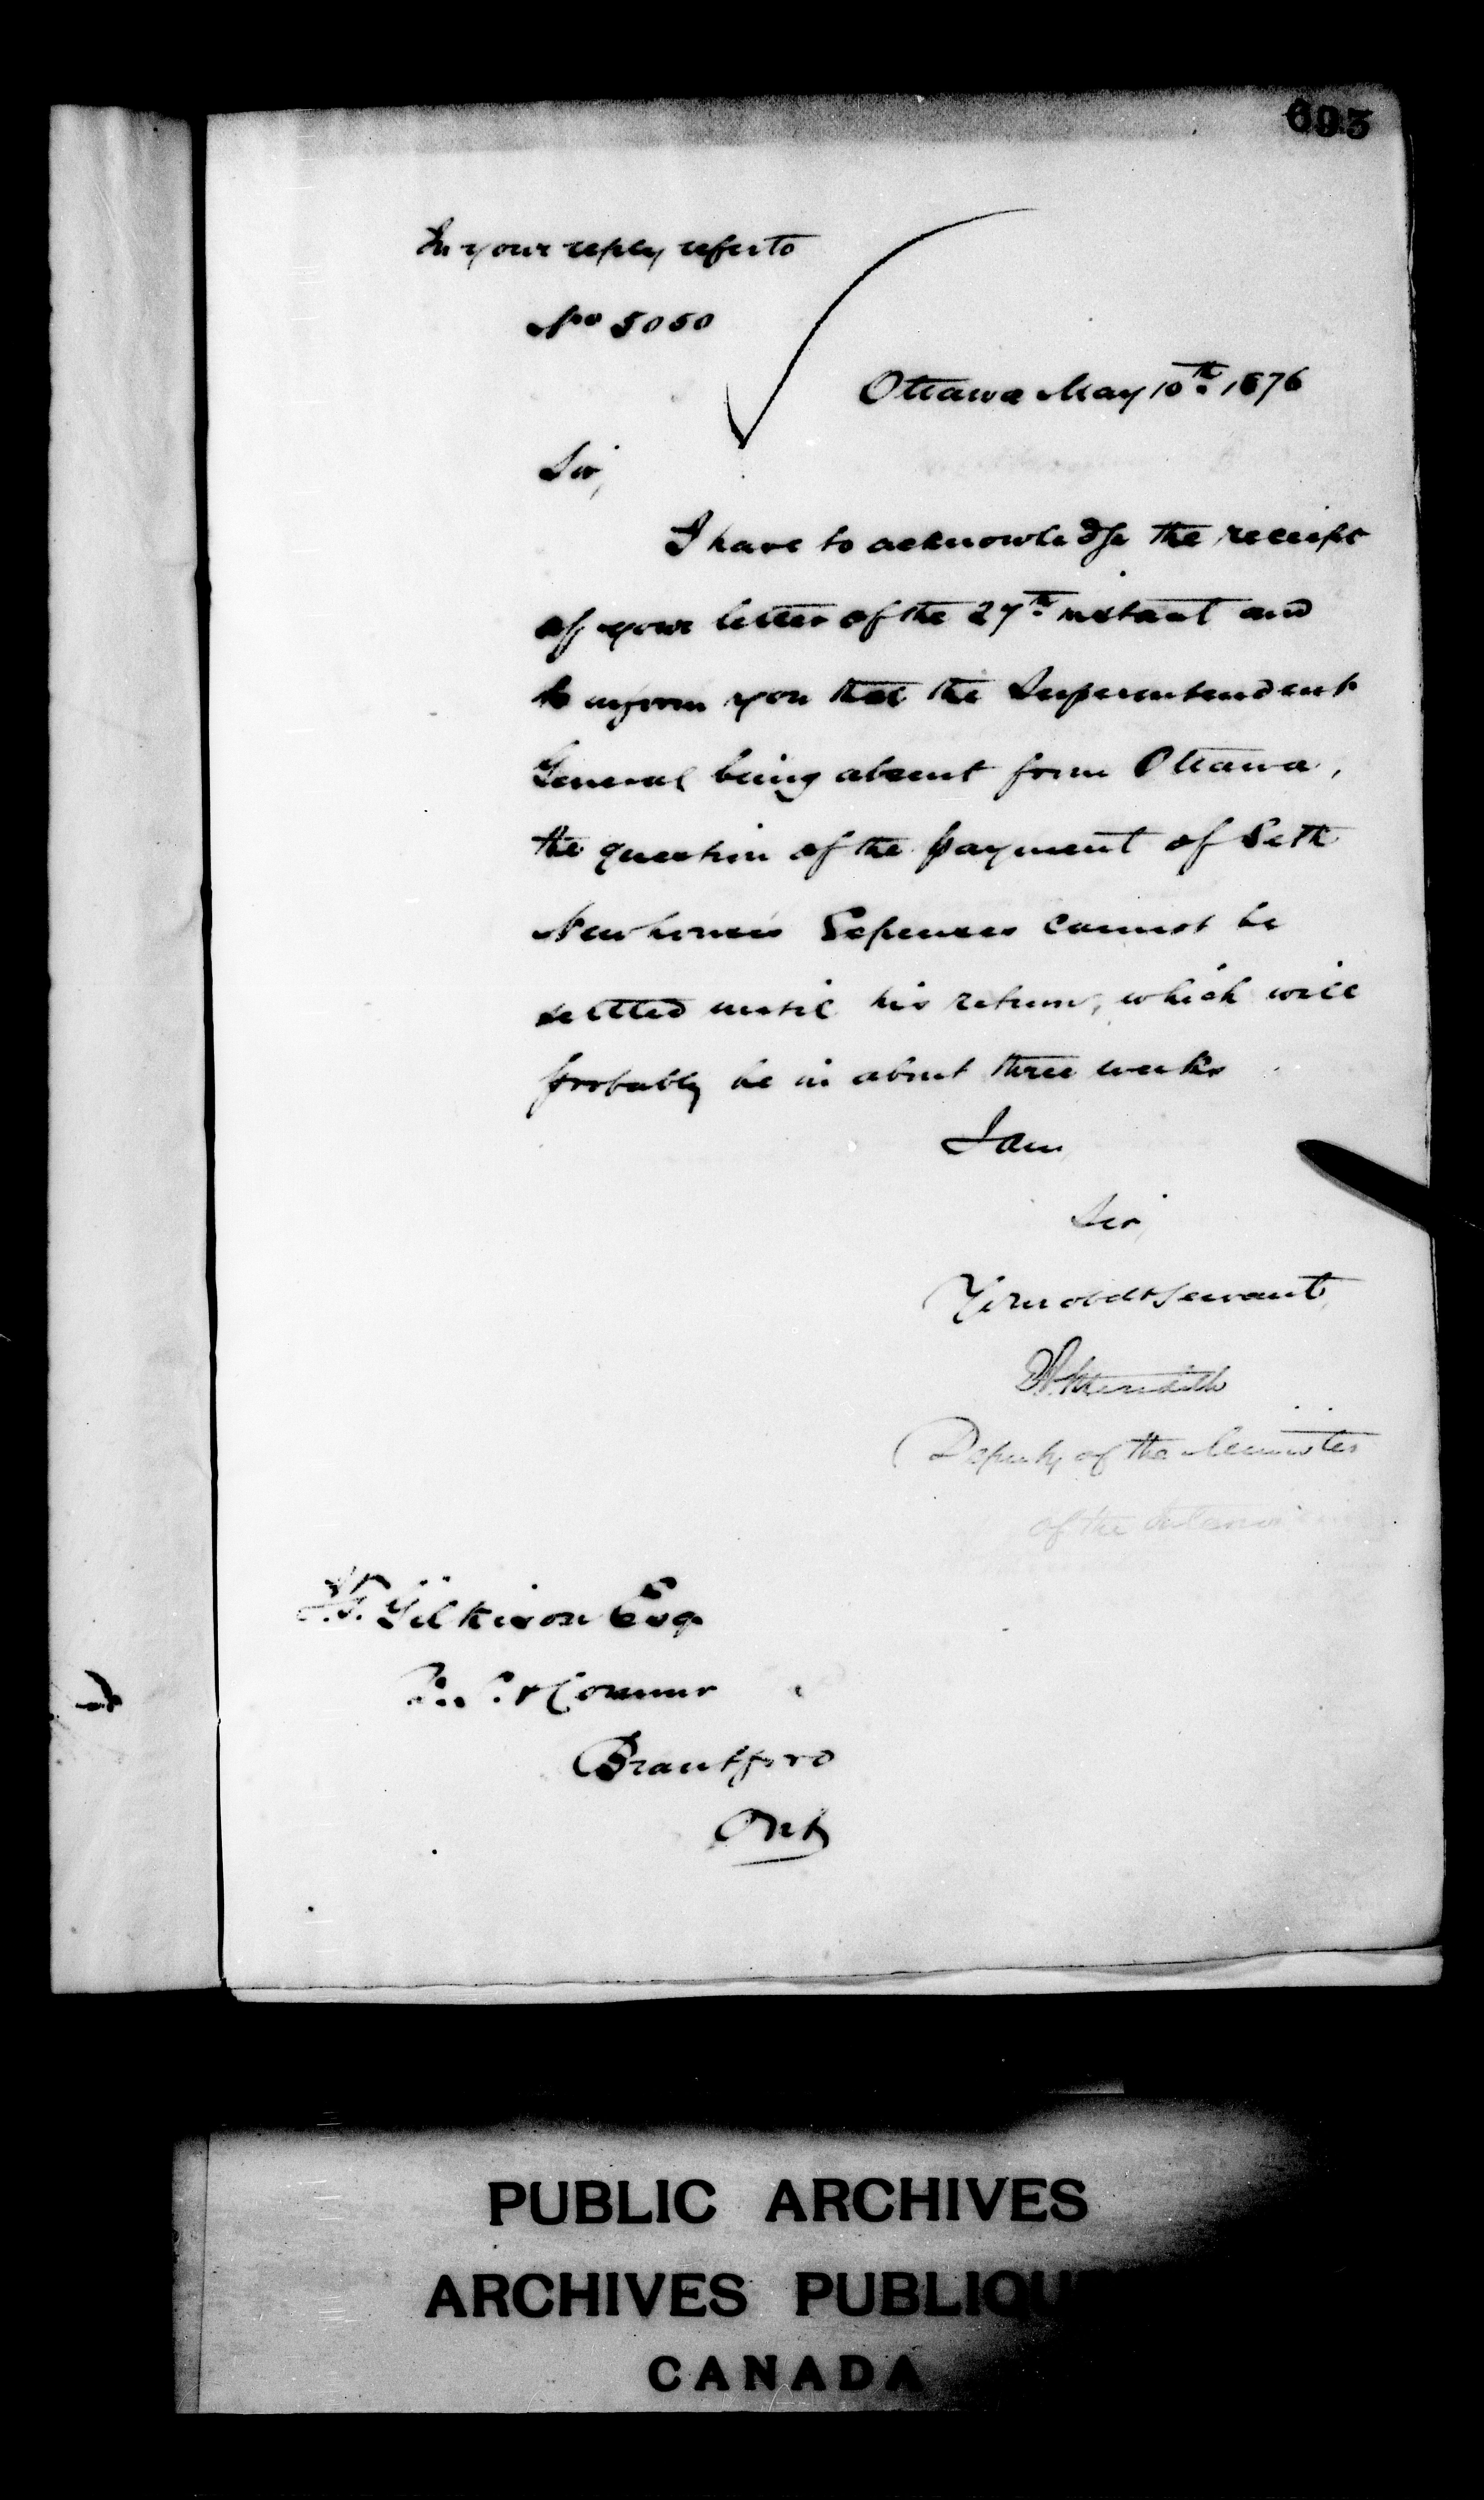 693
In your reply refer to
No 5050
Ottawa May 10th 1876
Sir,
I have to acknowledge the receipt
of your letter of the 27th instant and
to inform you that the Superintendent
General being absent from Ottawa,
the question of the payment of Seth
Newhouse's Expenses cannot be
settled until his return, which will
probably be in about three weeks
I am
Sir,
Your obdt servant,
Meredith
Deputy of the Minister
of the Interior
J.T. Gilkison Esq
& Commr
Brantford
Ont
PUBLIC ARCHIVES
ARCHIVES PUBLIQU
CANADA